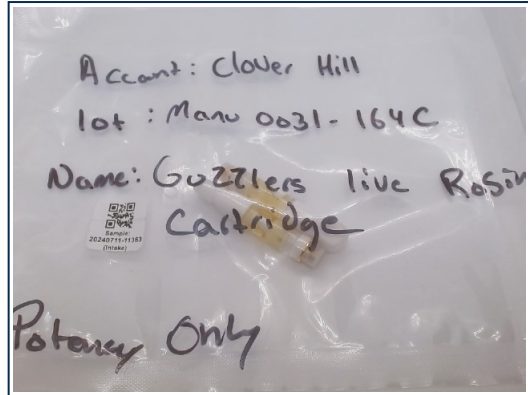 Accant: Clover Hill
lot: Manu 0031-164C
Name: Guzzlers live Rosin
Cartridge
Sample:
20240711-11353
(Intake)
Potency Only